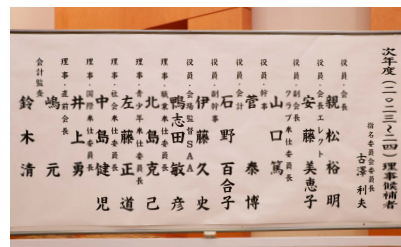 次年度(二〇二三〜二四)理事候補者
指名委員会委員長
古澤利夫
役員・会長
親松裕明
役員・会長エレクト
安藤美恵子
役員・副会長
クラブ奉仕委員長
山口篤
役員・幹事
菅泰博
役員・会計
石野百合子
役員・副幹事
伊藤久史
役員・会場監督SAA
鴨志田敏彦
理事・職業奉仕委員長
北島克己
理事・青少年奉仕委員長
左藤正道
理事・社会奉仕委員長
中島健児
理事・国際奉仕委員長
井上勇
理事・直前会長
嶋元
会計監査
鈴木清